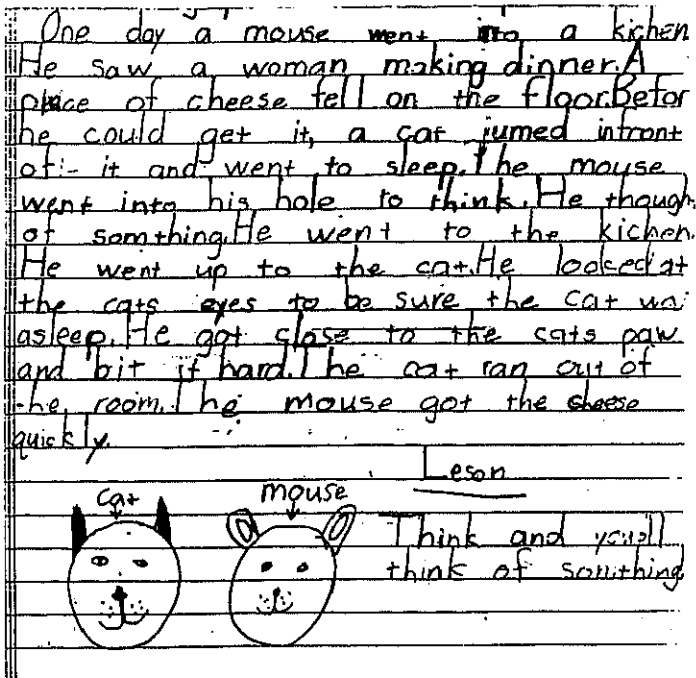 One day a mouse went into a kichen
He saw a woman making dinner. A
pice of cheese fell on the floor. Befor
he could get it, a cat jumed infront
of it and went to sleep. The mouse
went into his hole to think. He though
of somthing. He went to the kichen.
He went up to the cat. He looked at
the cats eyes to be sure the cat
asleep. He got close to the cats paw
and bit it hard. The cat ran out of
the room. The mouse got the cheese
quickly.
Leson
cat
mouse
Think and you'll
think of somthing